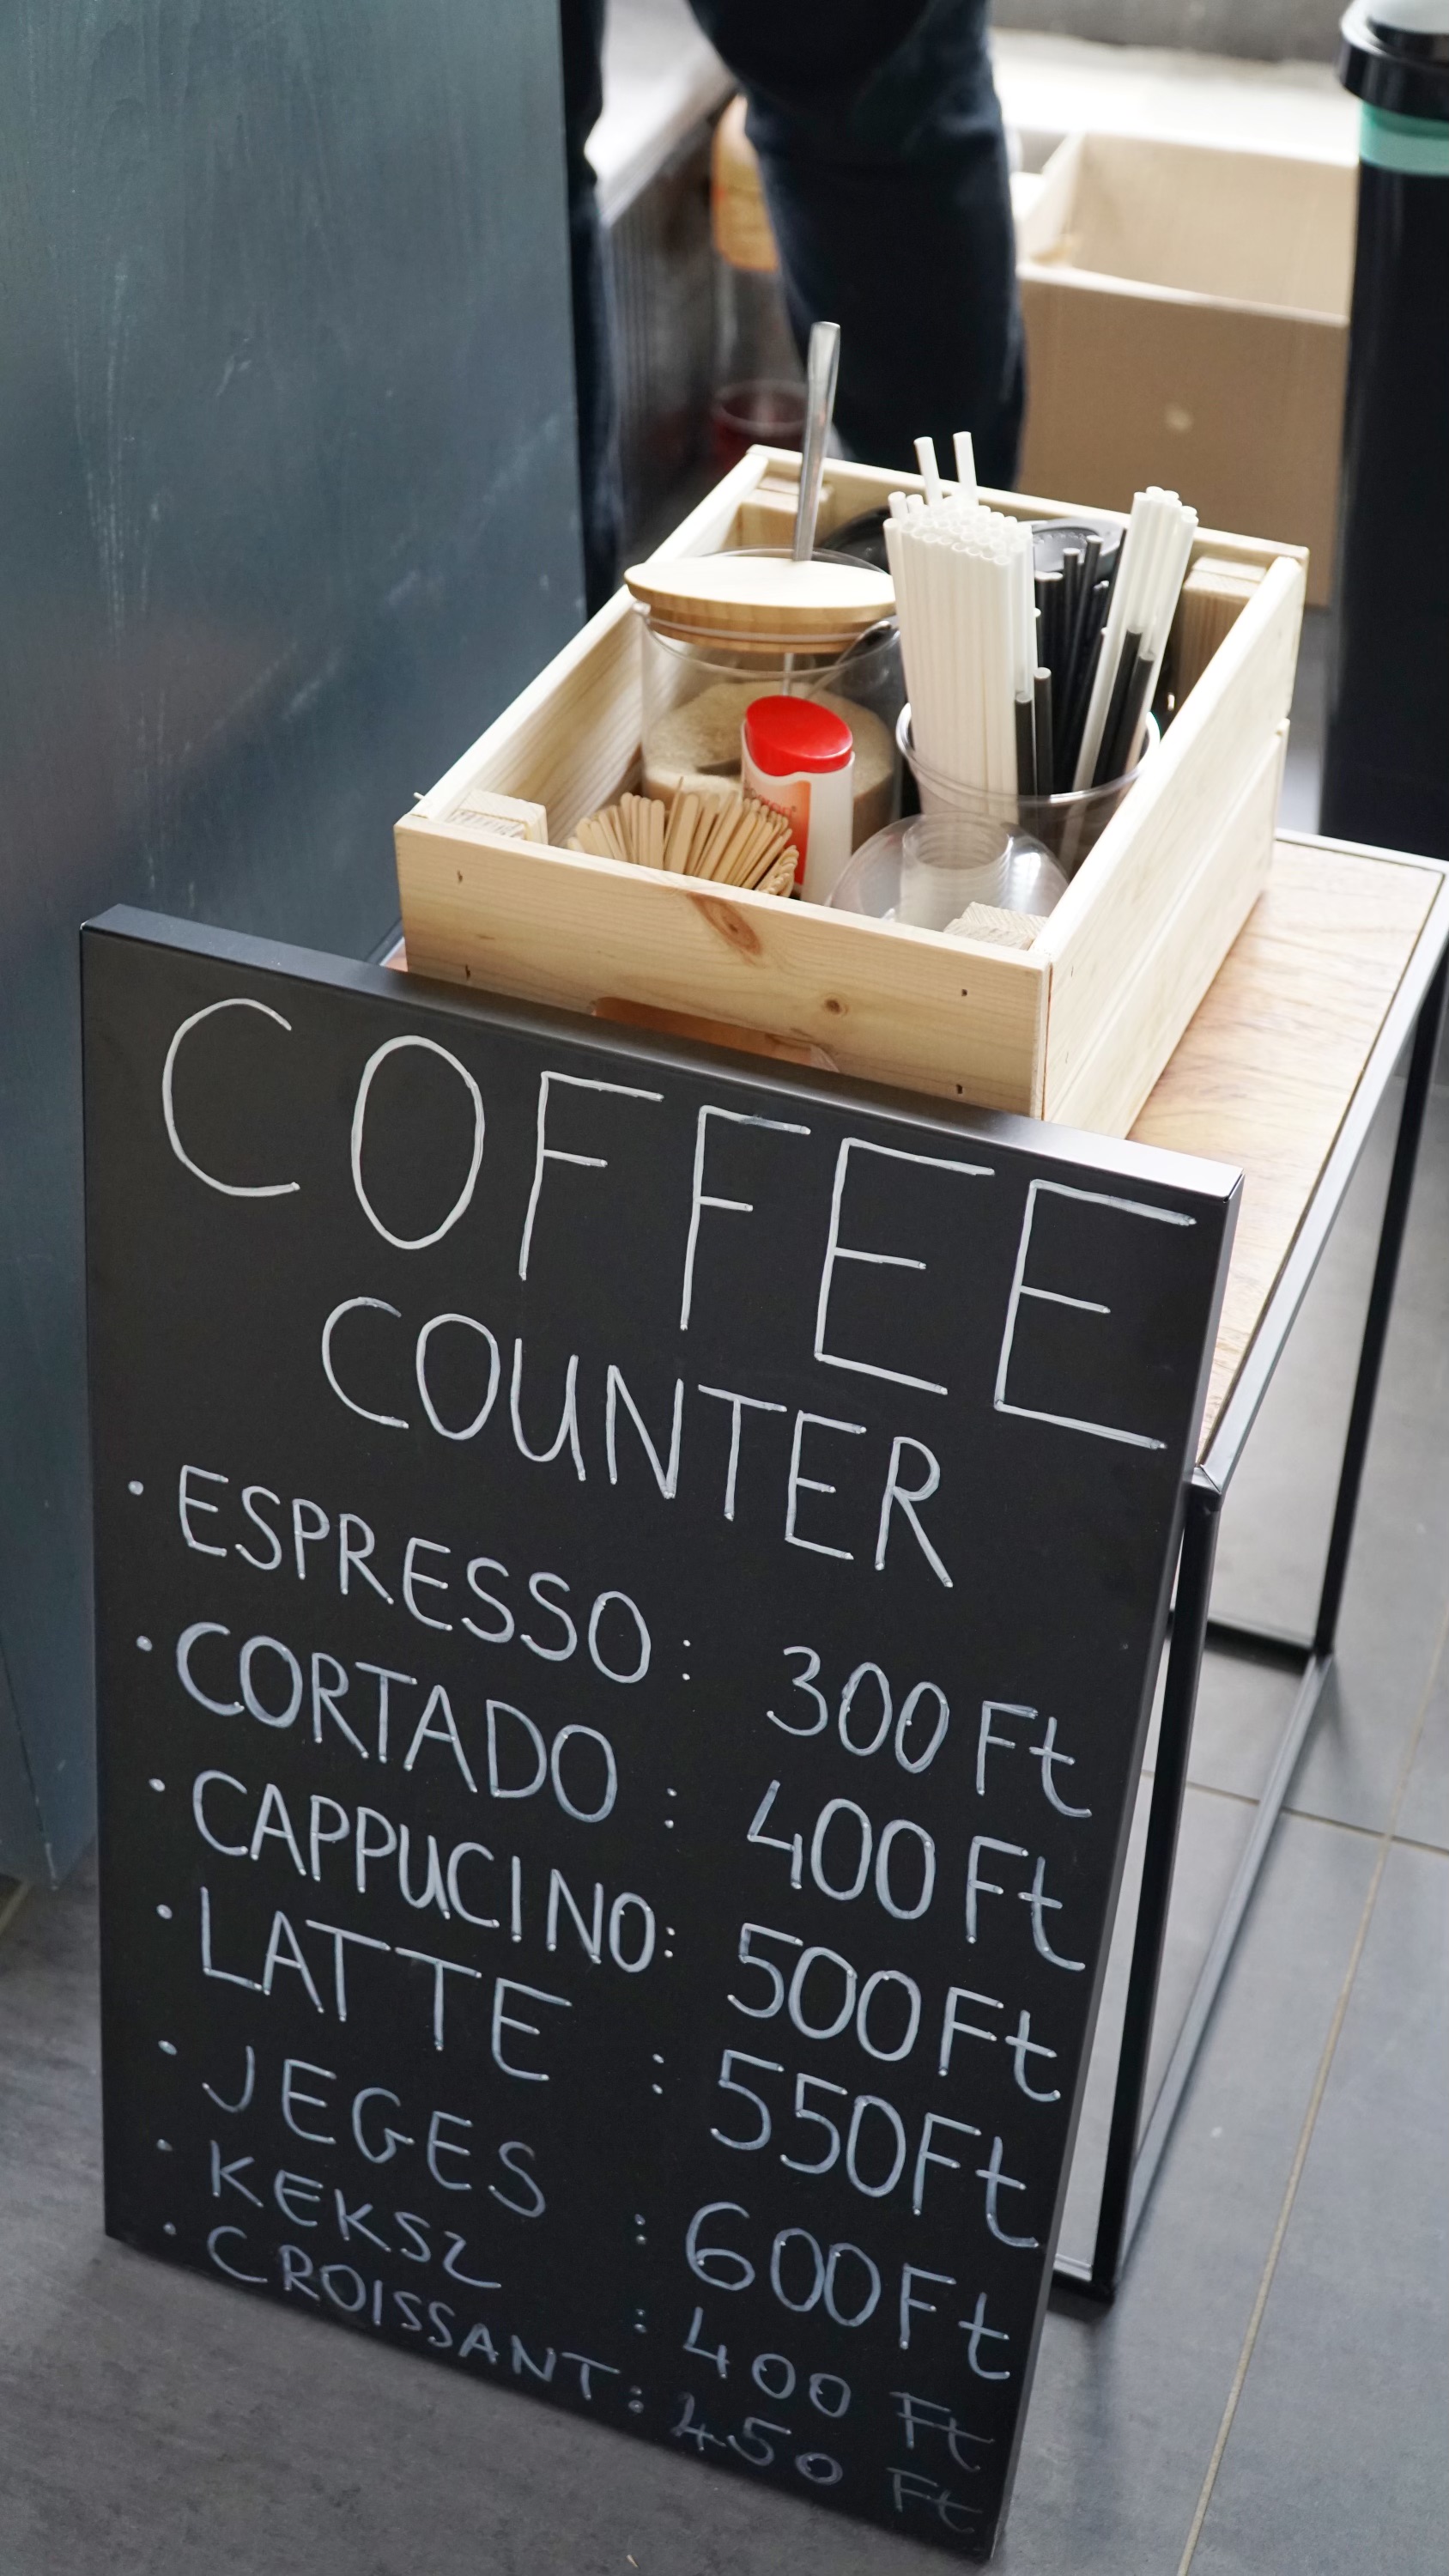 COFFEE
COUNTER
· ESPRESSO: 300 Ft
· CORTADO: 400 Ft
· CAPPUCINO: 500 Ft
· LATTE : 550 Ft
· JEGES : 600 Ft
· KEKSZ : 400 Ft
· CROISSANT: 450 Ft